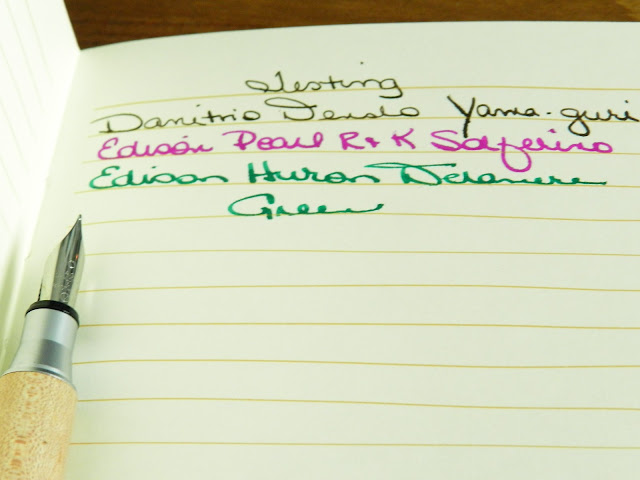 Testing
Danitrio Densho Yama-guri
Edison Pearl R & K Solferino
Edison Huron Delamere
Green